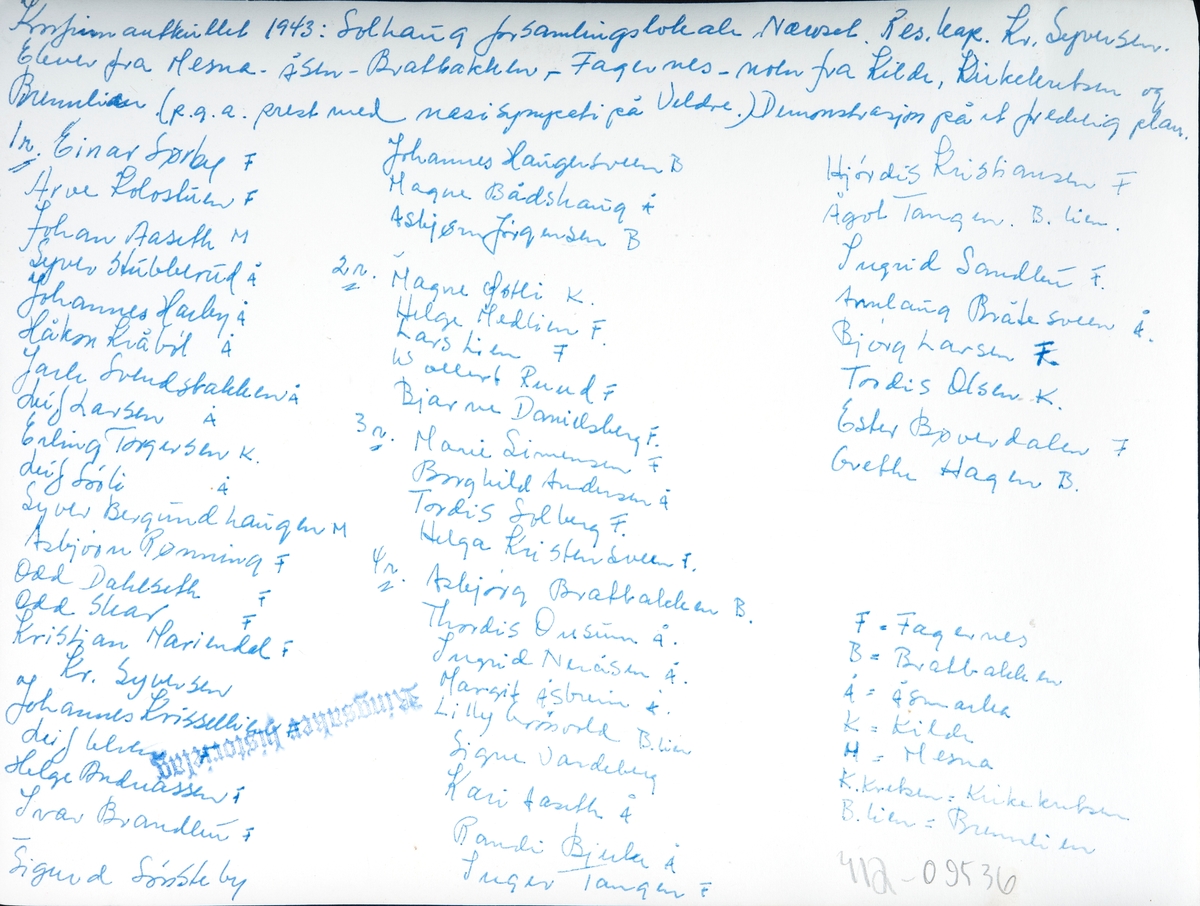 Konfirmantkullet 1943: Solhaug forsamlingslokale Næroset. Res. kap. Kr. Syversen.
Elever fra Mesna - Åsen - Bratbakken - Fagernes - noen fra Kilde, Kirkekretsen og
Brennlien (p.g.a. prest med nazisympati på Veldre.) Demonstrasjon på et fredelig plan.
1r. Einar Sørby F
Arve Kolostuen F
Johan Aaseth M
Syver Stubberud Å
Johannes Harby Å
Håkon Kråbøl Å
Jarle Svendsbakken Å
Leif Larsen Å
Erling Torgersen K.
Leif Sørli Å
Syver Bergundhaugen M
Asbjørn Rønning F
Odd Dahlseth F
Odd Skar F
Kristian Mariendal F
og Kr. Syversen
Johannes
Leif
Helge Andreassen F
Ivar Brandlien F
Sigurd Sørsteby
Johannes Haugersveen B
Magne Bådshaug Å
Asbjørn Jörgensen B
2r. Magne K.
Helge Medlien F.
Lars Lien F
Wollert Ruud F
Bjarne Danielsberg F.
3r. Marie Simensen F
Borghild Andersen Å
Tordis Solberg F.
Helga Kristensveen F.
4r. Asbjørg Bratbakken B.
Thordis Å.
Ingrid Neråsen Å.
Margit Å.
Lilly B.lien
Signe Vardeberg
Kari Aaseth Å
Randi Bjerke Å
Inger Tangen F
Hjördis Kristiansen F
Ågot Tangen. B. lien.
Ingrid Sandlien F.
Annlaug Bråtesveen Å.
Björg Larsen F.
Tordis Olsen K.
Ester Bøverdalen F
Grethe Hagen B.
F = Fagernes
B = Bratbakken
Å = Åsmarka
K = Kilde
M = Mesna
K.kretsen = Kirkekretsen
B. lien = Brennlien
Ringsaker historielag
412-09536